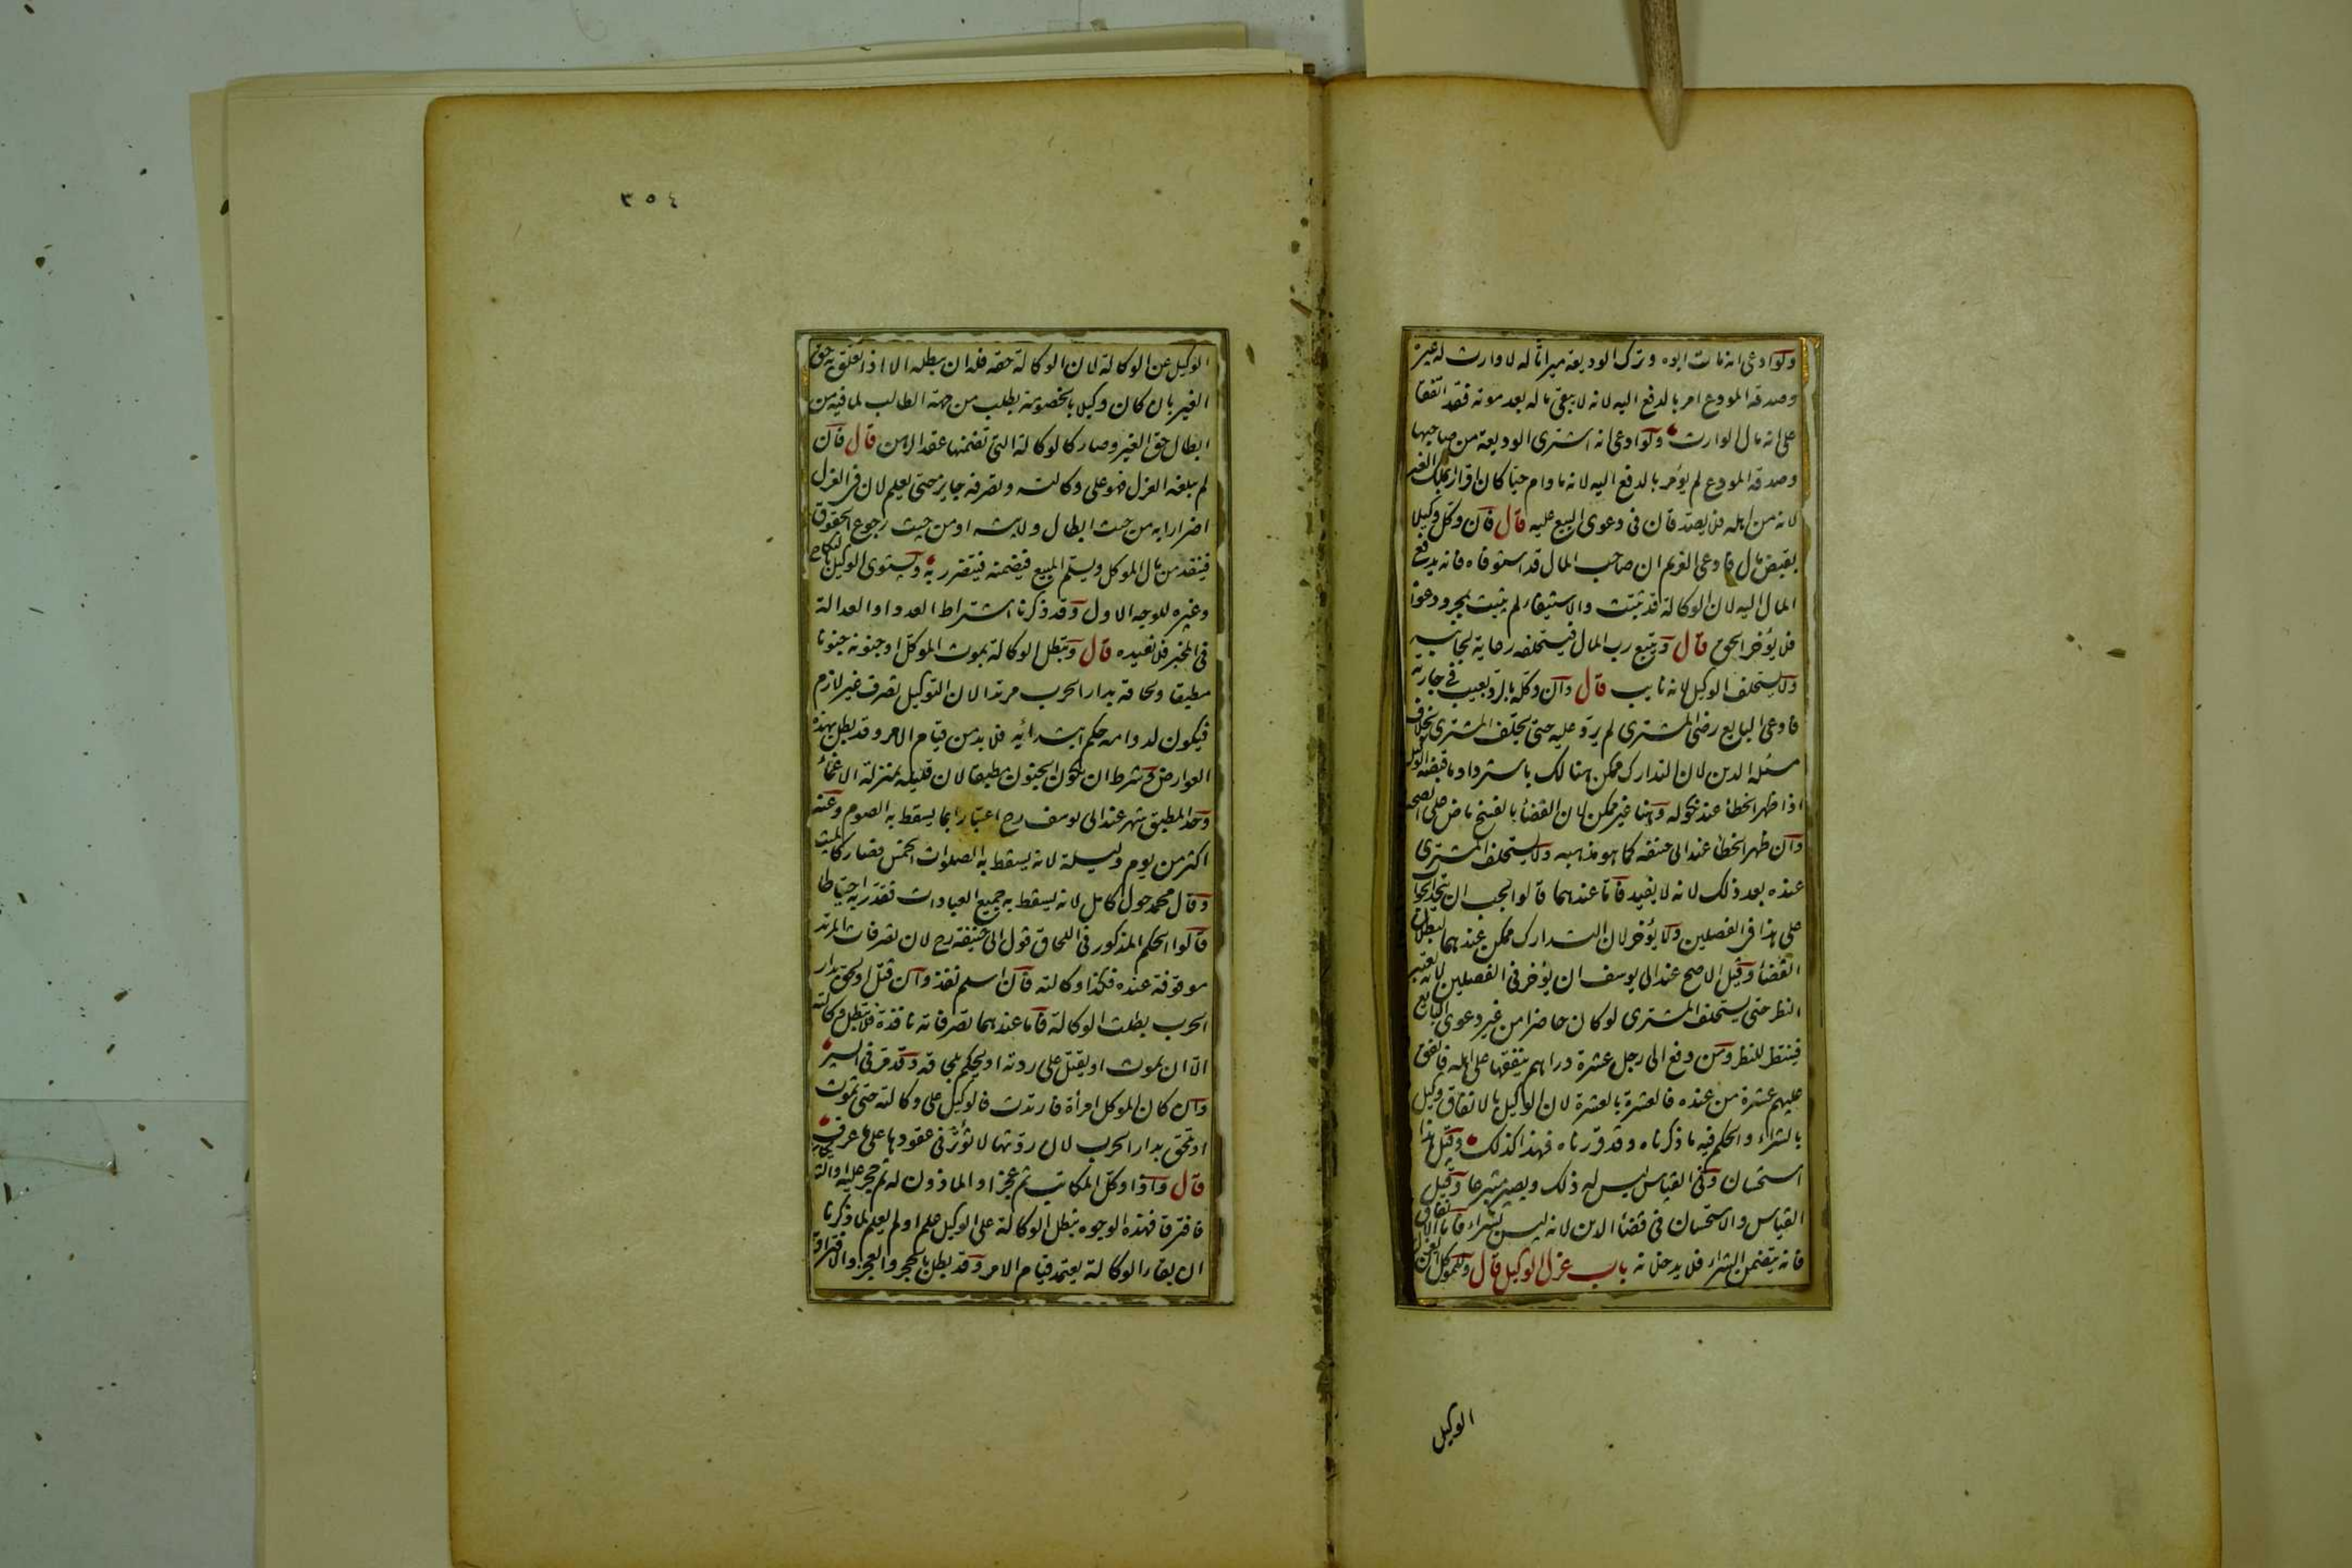 ولو ادعى انه مات ابوه وترك الوديعة ميراثا له لا وارث له غيره
وصدقه المودع امر بالدفع اليه لانه لا يبقى ماله بعد موته فقد اتفقا
على انه مال الوارث ولو ادعى انه اشترى الوديعة من صاحبها
وصدقه المودع لم يؤمر بالدفع اليه لانه مادام حيا كان اقرارا بملك الغير
لانه من اهله فلا يصدقان فى دعوى البيع عليه قال فان وكل وكيلا
بقبض مال فادعى الغريم ان صاحب المال قد استوفاه فانه يدفع
المال اليه لان الوكالة قد ثبتت والاستيفاء لم يثبت بمجرد دعواه
فلا يؤخر الحق قال ويتبع رب المال فيستحلفه رعاية لجانبه
ولا يستحلف الوكيل لانه نايب قال وان وكله بالرد بعيب فى جارية
فادعى البايع رضى المشترى لم يرد عليه حتى يحلف المشترى بخلاف
مسئلة الدين لان التدارك ممكن هنالك باسترداد ما قبضه الوكيل
اذا ظهر الخطأ عند نكوله وهنا غير ممكن لان القضاء بالفسخ ماض على الصحة
وان ظهر الخطأ عند ابى حنيفه كما هو مذهبه ولا يستحلف المشترى
عنده بعد ذلك لانه لا يفيد فاما عندهما قالوا يجب ان يتحد الجواب
على هذا فى الفصلين ولا يؤخر لان التدارك ممكن عندهما لبطلان
القضاء وقيل الاصح عند ابى يوسف ان يؤخر فى الفصلين لانه يعتبر
النظر حتى يستحلف المشترى لو كان حاضرا من غير دعوى البايع
فينتظر للنظر ومن دفع الى رجل عشرة دراهم ينفقها على اهله فانفق
عليهم عشرة من عنده فالعشرة بالعشرة لان الوكيل بالانفاق وكيل
بالشراء والحكم فيه ما ذكرناه وقد قررناه فهذا كذلك وقيل هذا
استحسان وفى القياس ليس له ذلك ويصير متبرعا وقيل
القياس والاستحسان فى قضاء الدين لانه ليس بشراء فاما الانفاق
فانه يتضمن الشراء فلا يدخلانه باب عزل الوكيل قال وللموكل ان يعزل
الوكيل
٣٥٤
الوكيل عن الوكالة لان الوكالة حقه فله ان يبطله الا اذا تعلق به حق
الغير بان كان وكيلا بالخصومة بطلب من جهة الطالب لما فيه من
ابطال حق الغير وصار كالوكالة التى تضمنها عقد الرهن قال فان
لم يبلغه العزل فهو على وكالته وتصرفه جايز حتى يعلم لان فى العزل
اضرارا به من حيث ابطال ولايته او من حيث رجوع الحقوق
فينقد من مال الموكل ويسلم المبيع فيضمنه فيتضرر به ويستوى الوكيل بالنكاح
وغيره للوجه الاول وقد ذكرنا اشتراط العدد او العدالة
فى المخبر فلا نعيده قال وتبطل الوكالة بموت الموكل او جنونه جنونا
مطبقا ولحاقه بدار الحرب مرتدا لان التوكيل تصرف غير لازم
فيكون لدوامه حكم ابتدائه فلا بد من قيام الامر وقد بطل بهذه
العوارض وشرط ان يكون الجنون مطبقا لان قليله بمنزلة الاغماء
وحد المطبق شهر عند ابى يوسف رح اعتبارا بما يسقط به الصوم وعنه
اكثر من يوم وليلة لانه يسقط به الصلوات الخمس فصار كالميت
وقال محمد حول كامل لانه يسقط به جميع العبادات فقدر به احتياطا
قالوا الحكم المذكور فى اللحاق قول ابى حنيفة رح لان تصرفات المرتد
موقوفة عنده فكذا وكالته فان اسلم نفذ وان قتل او لحق بدار
الحرب بطلت الوكالة فاما عندهما تصرفاته نافذة فلا تبطل وكالته
الا ان يموت او يقتل على ردته او يحكم بلحاقه وقد مر فى السير
وان كان الموكل امرأة فارتدت فالوكيل على وكالته حتى تموت
او تلحق بدار الحرب لان ردتها لا تؤثر فى عقودها على ما عرف
قال واذا وكل المكاتب ثم عجز او الماذون له ثم حجر عليه او الشريكان
فافترقا فهذه الوجوه تبطل الوكالة على الوكيل علم او لم يعلم لما ذكرنا
ان بقاء الوكالة يعتمد قيام الامر وقد بطل بالحجر والعجز والافتراق